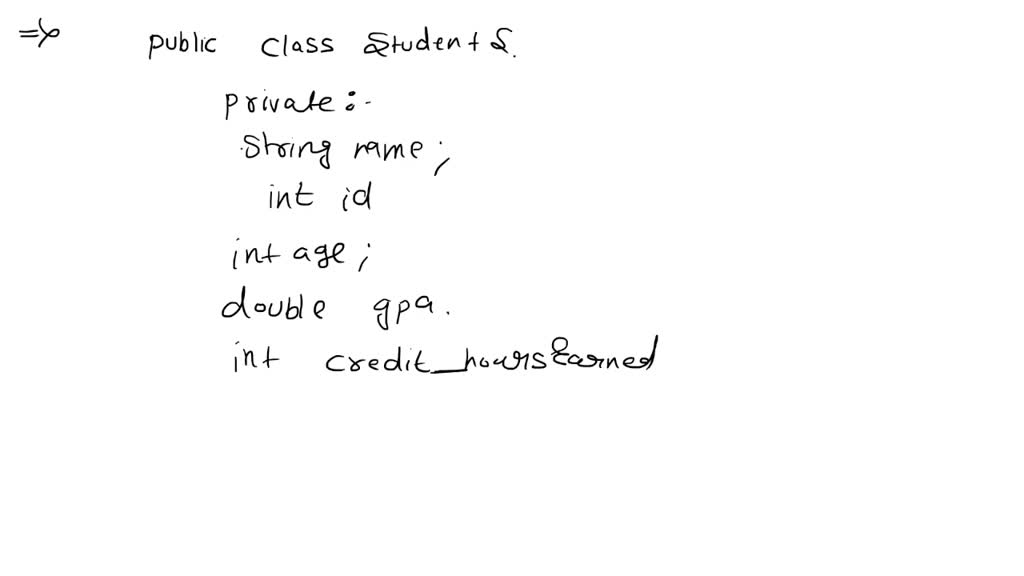 => public class Student {.
private :-
String name ;
int id
int age ;
double gpa .
int credit_hoursEarned